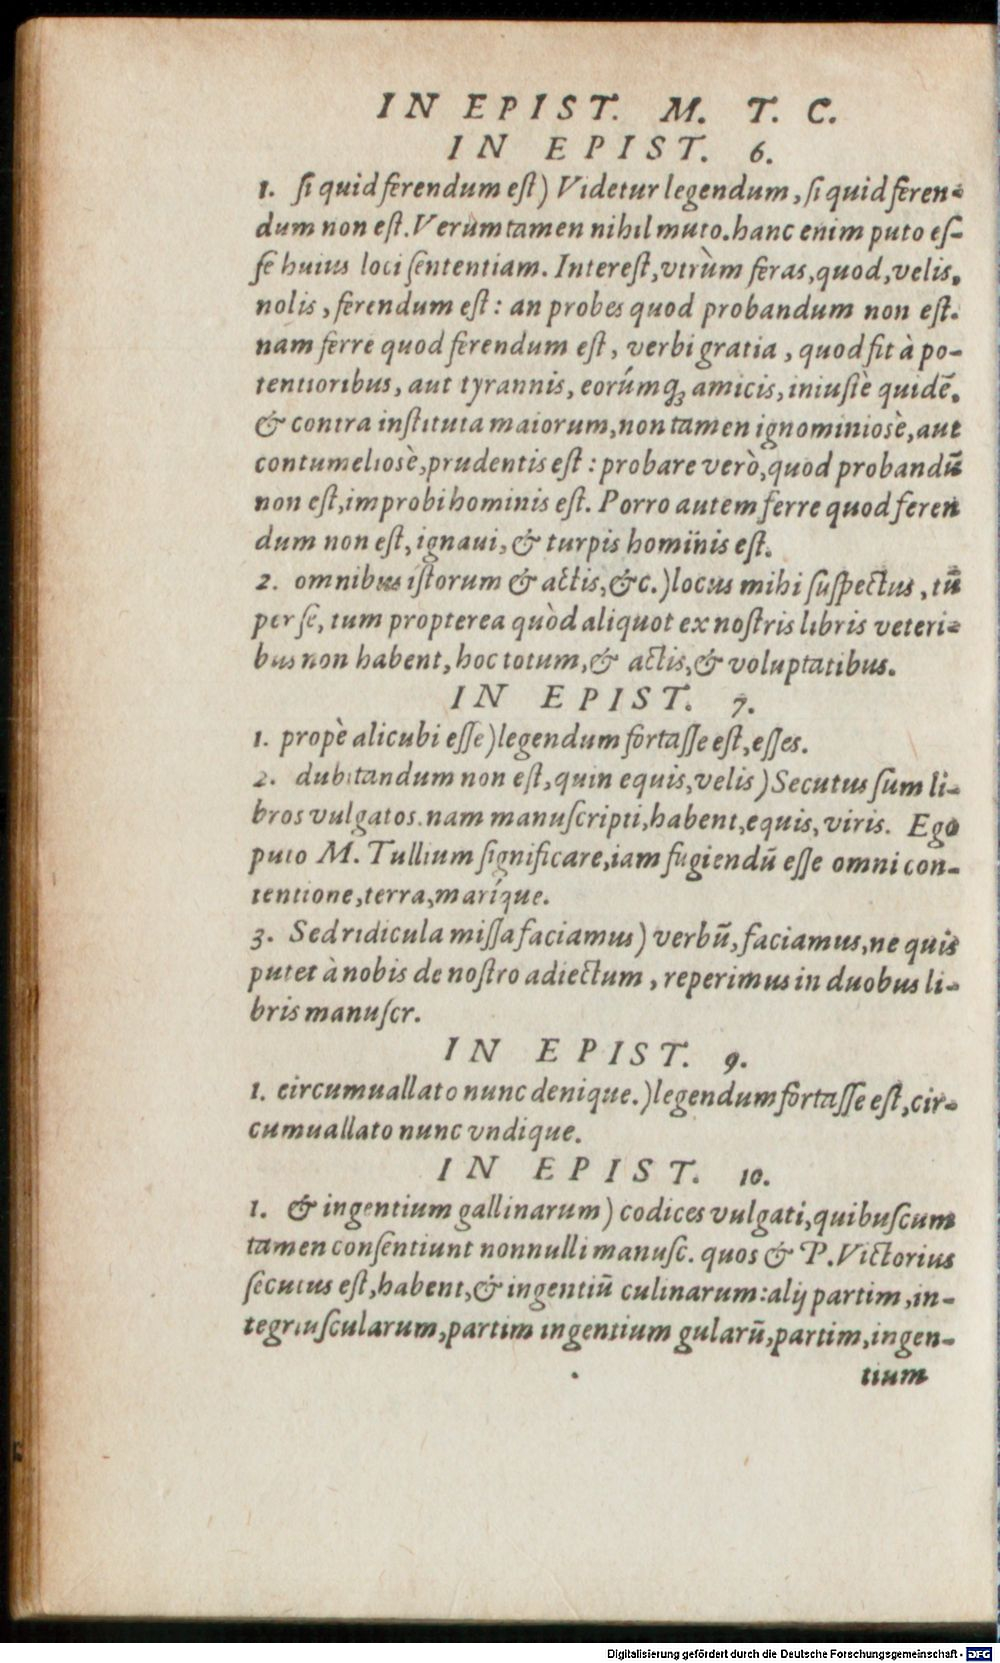 IN EPIST. M. T. C.
IN EPIST. 6.
1. ſi quid ferendum eſt) Videtur legendum, ſi quid feren-
dum non eſt. Verùm tamen nihil muto. hanc enim puto eſ-
ſe huius loci ſententiam. Intereſt, vtrùm feras, quod, velis,
nolis, ferendum eſt: an probes quod probandum non eſt.
nam ferre quod ferendum eſt, verbi gratia, quod fit à po-
tentioribus, aut tyrannis, eorúmq; amicis, iniuſtè quidē,
& contra inſtituta maiorum, non tamen ignominiosè, aut
contumeliosè, prudentis eſt: probare verò, quod probandū
non eſt, improbi hominis eſt. Porro autem ferre quod feren
dum non eſt, ignaui, & turpis hominis eſt.
2. omnibus iſtorum & actis, &c.) locus mihi ſuſpectus, tū
per ſe, tum propterea quòd aliquot ex noſtris libris veteri-
bus non habent, hoc totum, & actis, & voluptatibus.
IN EPIST. 7.
1. propè alicubi eſſe) legendum fortaſſe eſt, eſſes.
2. dubitandum non eſt, quin equis, velis) Secutus ſum li-
bros vulgatos. nam manuſcripti, habent, equis, viris. Ego
puto M. Tullium ſignificare, iam fugiendū eſſe omni con-
tentione, terra, maríque.
3. Sed ridicula miſſa faciamus) verbū, faciamus, ne quis
putet à nobis de noſtro adiectum, reperimus in duobus li-
bris manuſcr.
IN EPIST. 9.
1. circumuallato nunc denique.) legendum fortaſſe eſt, cir-
cumuallato nunc vndique.
IN EPIST. 10.
1. & ingentium gallinarum) codices vulgati, quibuſcum
tamen conſentiunt nonnulli manuſc. quos & P. Victorius
ſecutus eſt, habent, & ingentiū culinarum: alij partim, in-
tegriuſcularum, partim ingentium gularū, partim, ingen-
tium
Digitalisierung gefördert durch die Deutsche Forschungsgemeinschaft - DFG